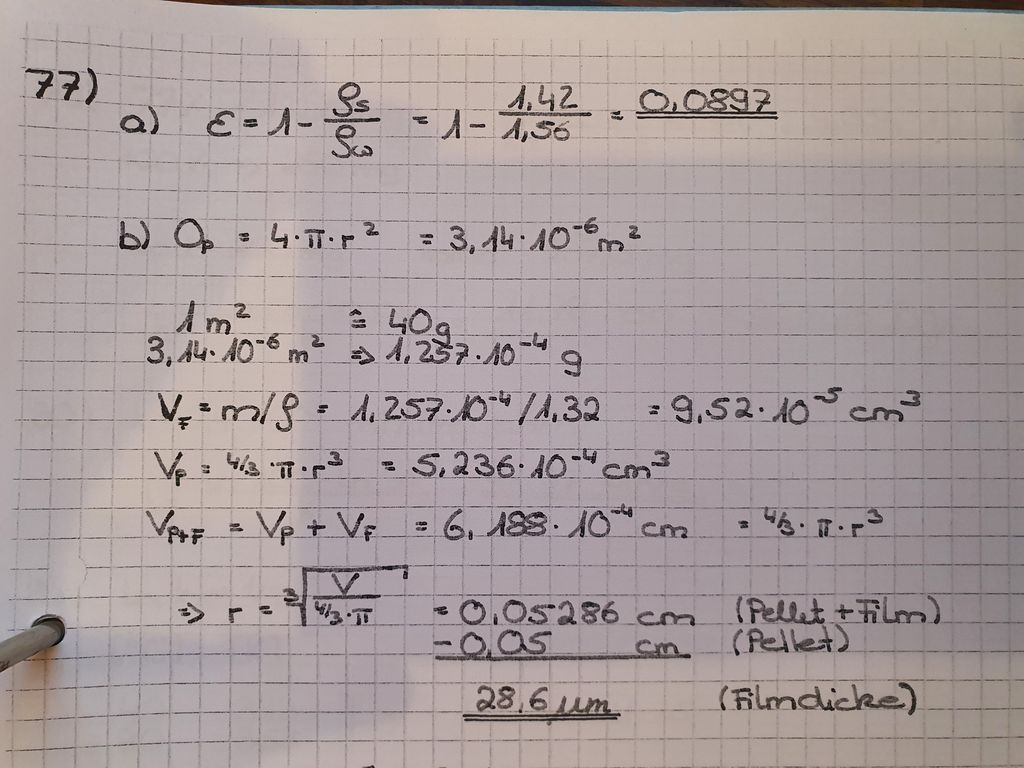 77)
a) ε = 1 - ρs/ρω = 1 - 1,42/1,56 = 0,0897
b) Op = 4·π·r² = 3,14·10⁻⁶ m²
1 m² ≙ 40g
3,14·10⁻⁶ m² => 1,257·10⁻⁴ g
VF = m/ρ = 1,257·10⁻⁴/1,32 = 9,52·10⁻⁵ cm³
VP = 4/3·π·r³ = 5,236·10⁻⁴ cm³
VP+F = VP + VF = 6,188·10⁻⁴ cm = 4/3·π·r³
=> r = ³√(V/(4/3·π)) = 0,05286 cm (Pellet + Film)
- 0,05 cm (Pellet)
28,6 µm (Filmdicke)